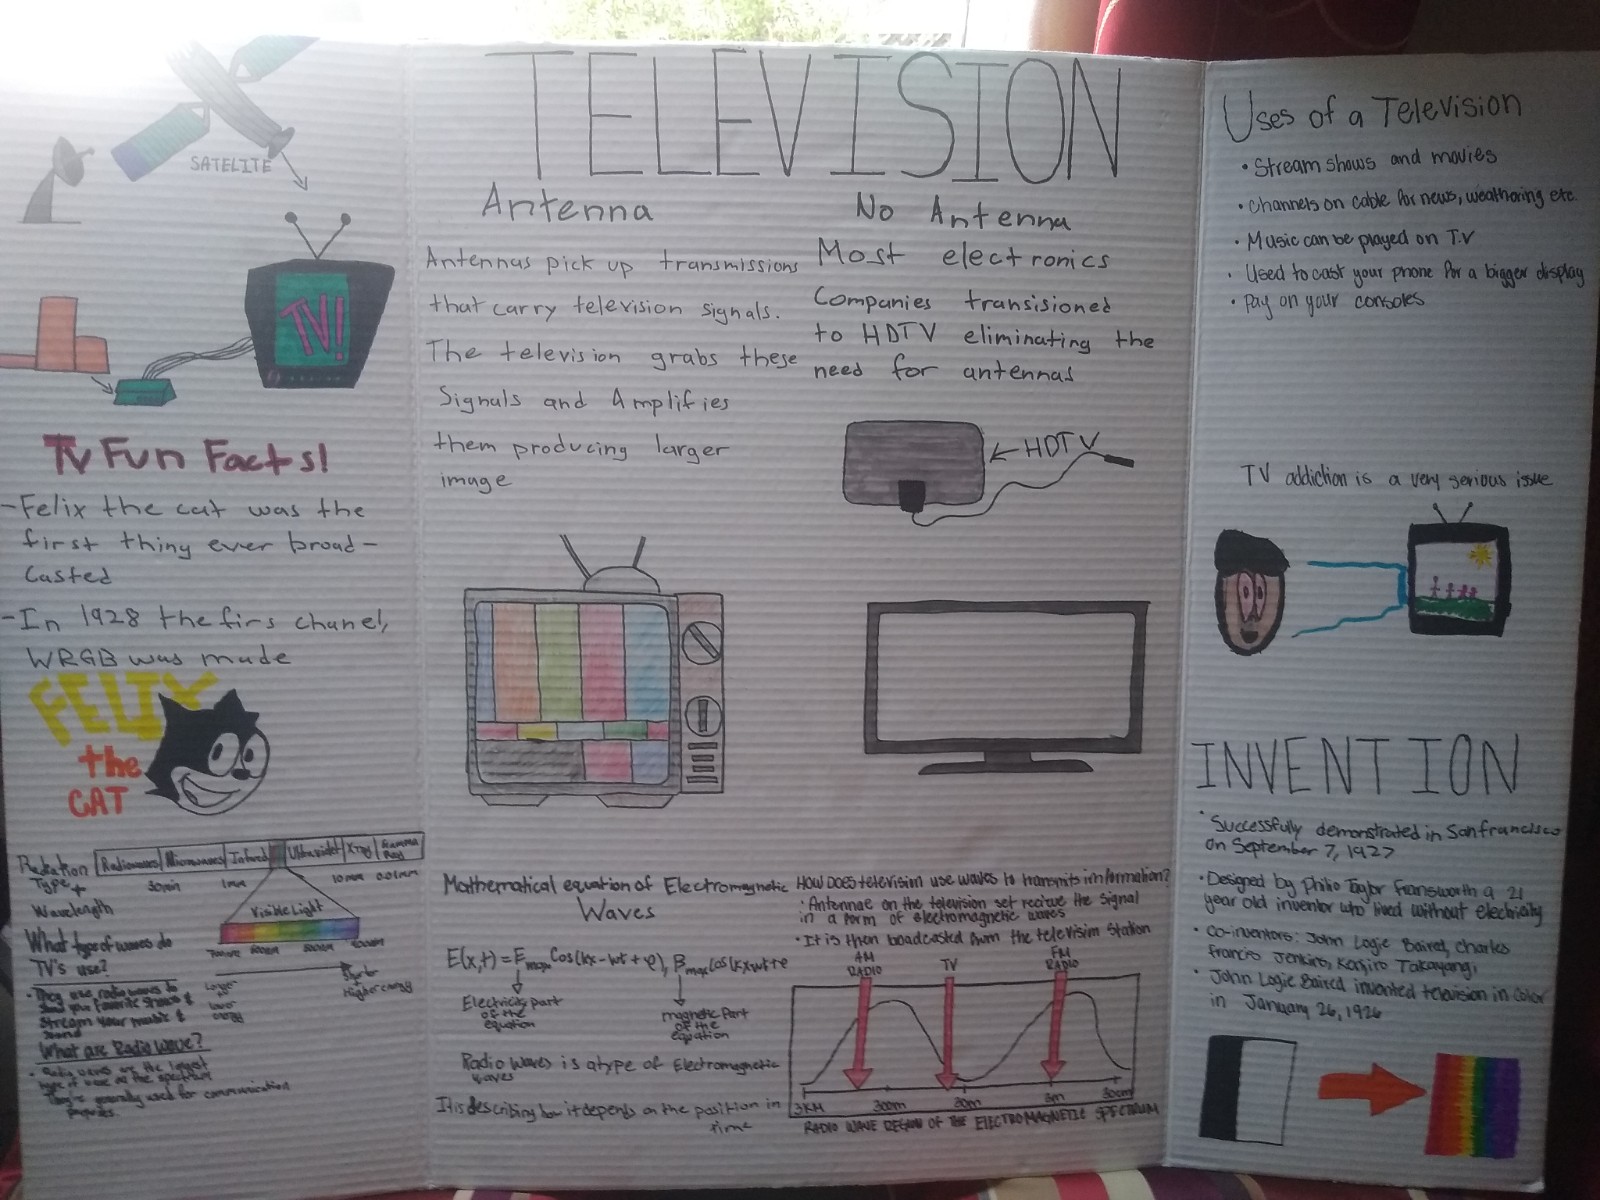 TELEVISION
SATELITE
TV!
TV Fun Facts!
-Felix the cat was the
first thing ever broad-
casted
-In 1928 the firs chanel,
WRGB was made
FELIX
the
CAT
Radiation
Type +
Wavelength
Radiowaves Microwaves Infared Ultraviolet X-ray Gamma
Ray
1mm
Visible Light
What type of waves do
TV's use?
• They use radio waves to
send your favorite shows &
Stream your music &
Longer
lower
Shorter
Higher energy
What are Radio Wave?
• Radio waves are the longest
type of wave on the spectrum
generally used for communication
purposes.
Antenna
Antennas pick up transmissions
that carry television signals.
The television grabs these
Signals and Amplifies
them producing larger
image
No Antenna
Most electronics
Companies transisioned
to HDTV eliminating the
need for antennas
HDTV
Mathematical equation of Electromagnetic
Waves
E(x,t) = Emax Cos(kx-wt+φ), Bmax Cos(kx-wt+φ
Electricity part
of the
equation
magnetic Part
of the
equation
Radio waves is a type of Electromagnetic
waves
It is describing how it depends on the position in
time
HOW DOES television use waves to transmits information?
• Antennae on the television set recieve the signal
in a form of electromagnetic waves
• It is then boadcasted from the television station
AM
RADIO
TV
FM
RADIO
3KM 300m 30m 3m 30cm
RADIO WAVE REGION OF THE ELECTROMAGNETIC SPECTRUM
Uses of a Television
• Stream shows and movies
• Channels on cable for news, weathoring etc.
• Music can be played on T.V
• Used to cast your phone for a bigger display
• Pay on your consoles
TV addiction is a very serious issue
INVENTION
• Successfully demonstrated in San francisco
on September 7, 1927
• Designed by Philo Taylor Fransworth a 21
year old inventor who lived without electricity
• Co-inventors: John Logie Baired, Charles
francis Jenkins, Kenjiro Takayangi
• John Logie Baired invented television in color
in January 26, 1926